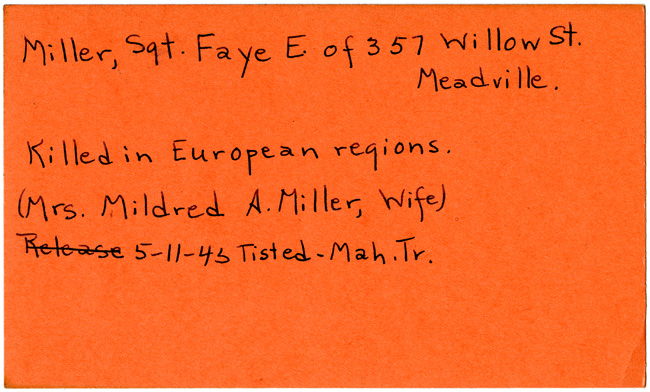 Miller, Sgt. Faye E. of 357 Willow St.
Meadville.
Killed in European regions.
(Mrs. Mildred A. Miller, Wife)
Release 5-11-43 Tisted - Mah. Tr.